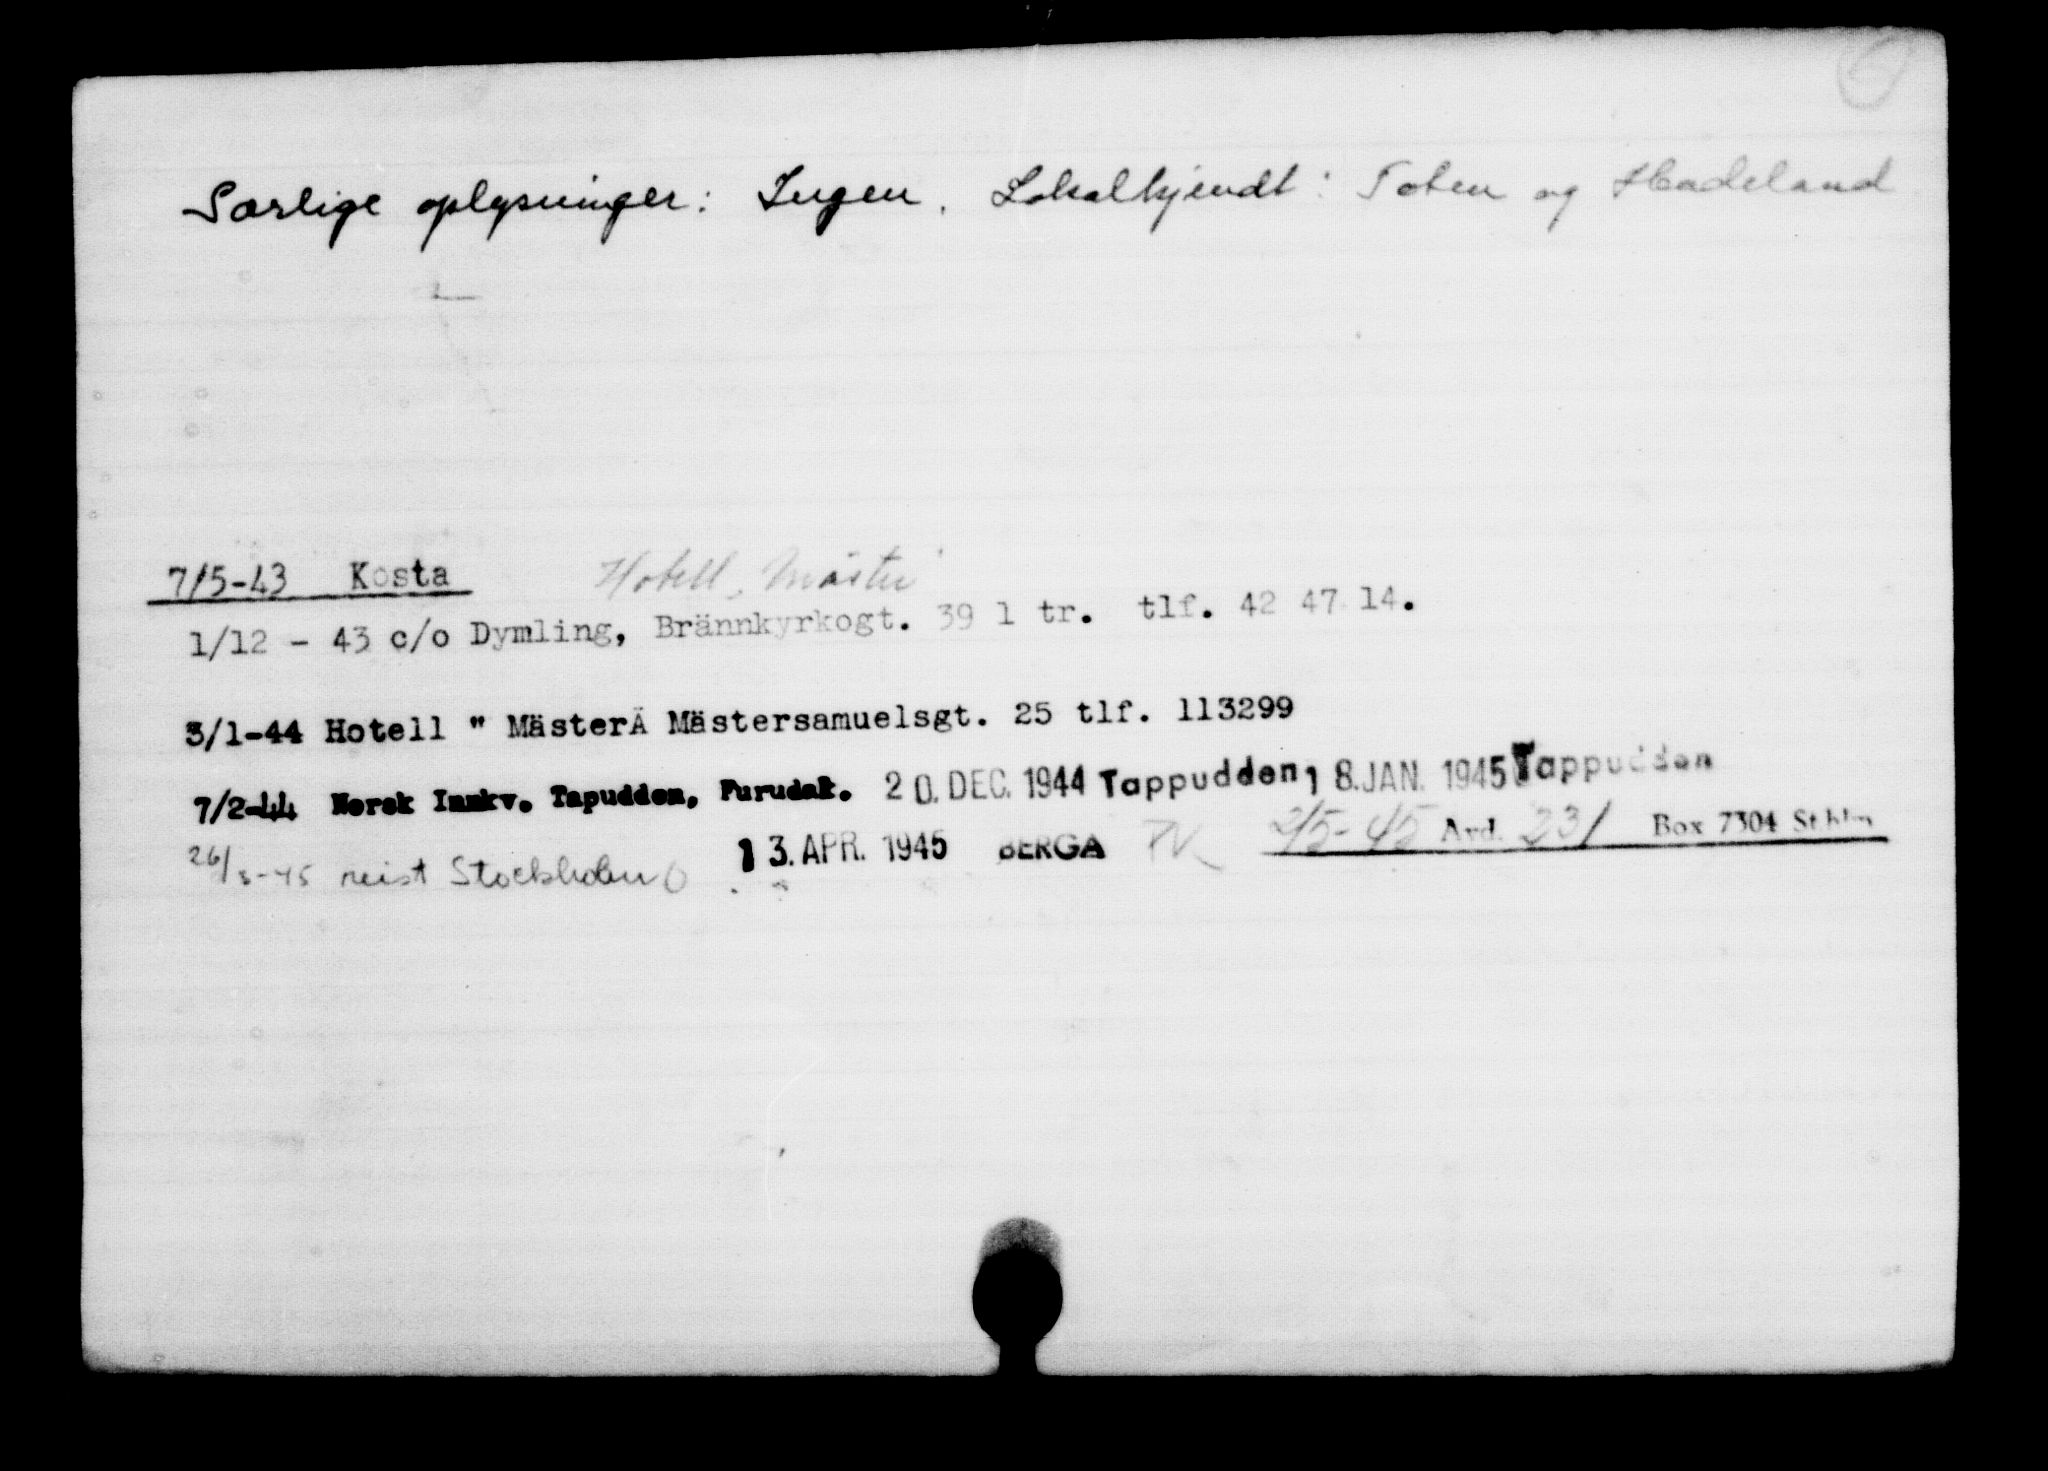 Særlige oplysninger: Ingen. Lokalkjendt: Toten og Hadeland
7/5-43 Kosta Hotell "Mäster"
1/12 - 43 c/o Dymling, Brännkyrkogt. 39 1 tr. tlf. 42 47 14.
3/1-44 Hotell " MästerÄ Mästersamuelsgt. 25 tlf. 113299
7/2-44 Norsk Innkv. Tapudden, Furudal. 20. DEC. 1944 Tappudden 18. JAN. 1945 Tappudden
26/3-45 reist Stockholm 13. APR. 1945 BERGA 2/5-45 Avd. 231 Box 7304 Sthlm